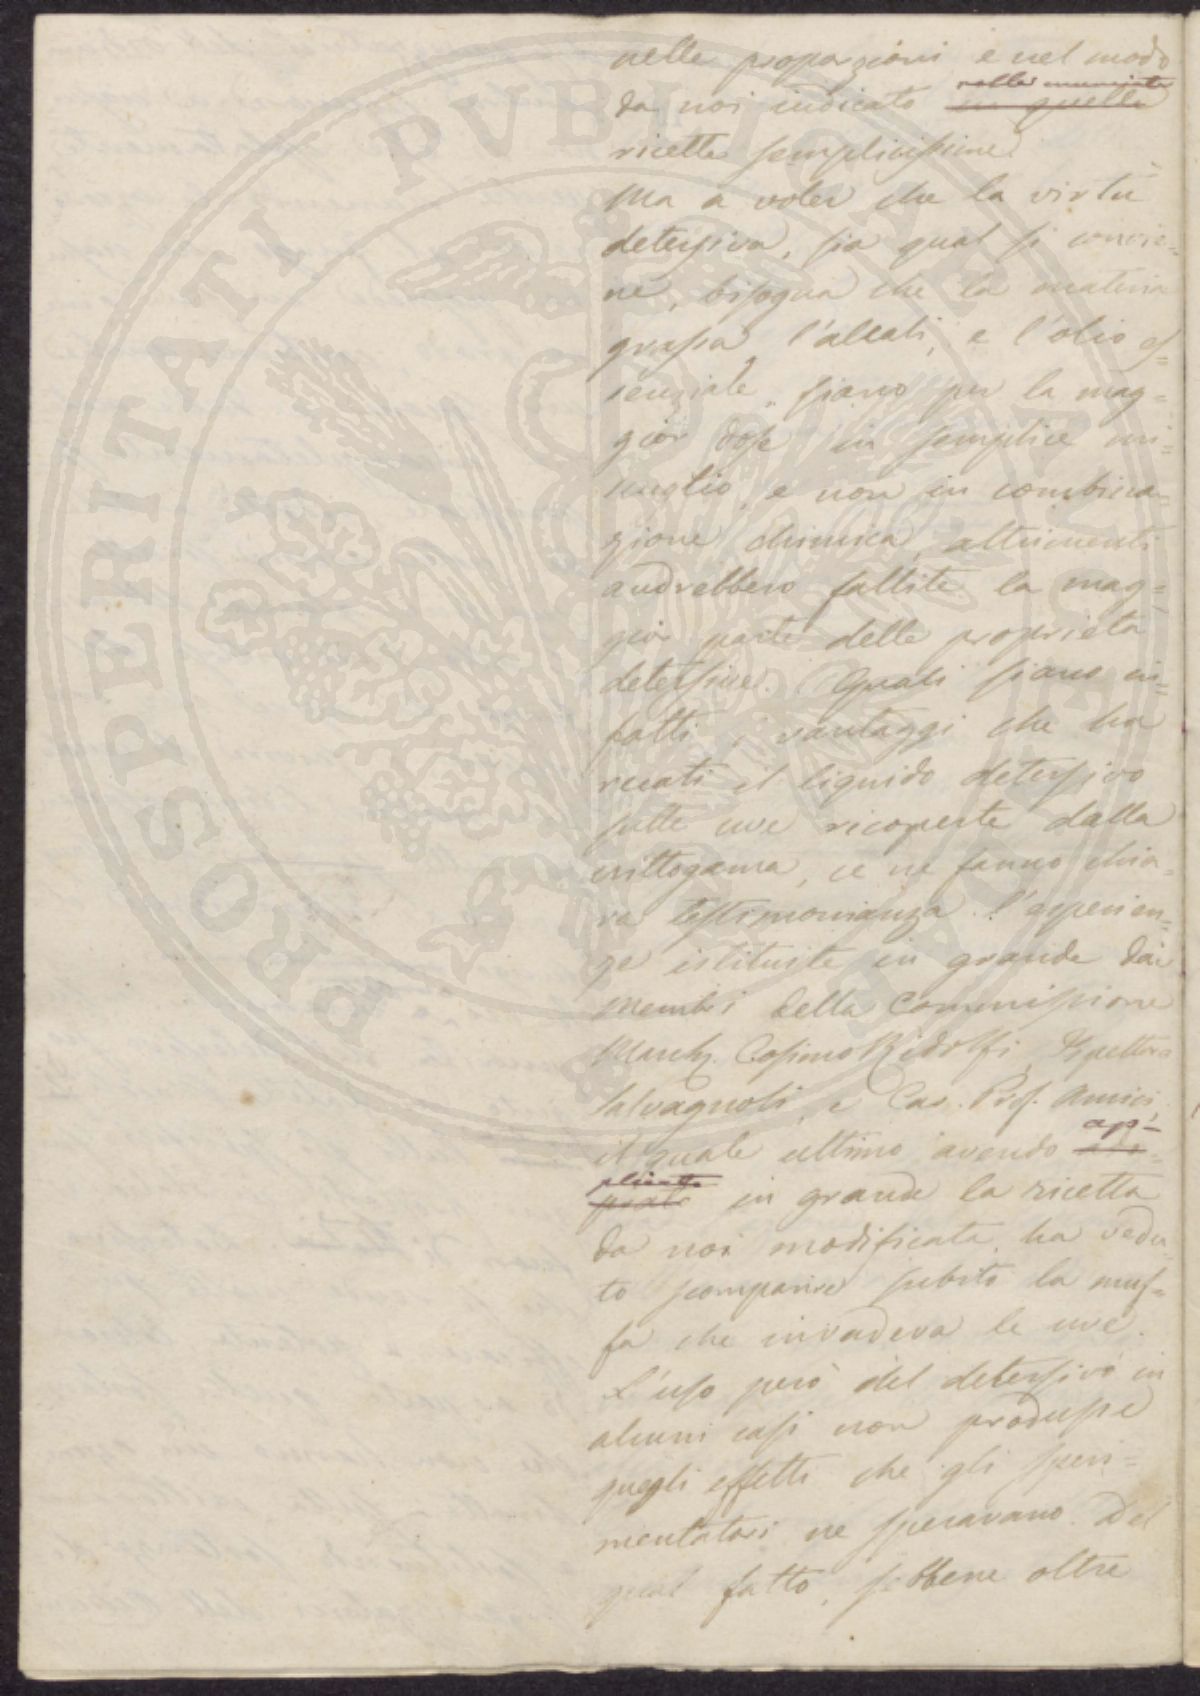 nelle proporzioni e nel modo
da noi indicato nella nunziata
in quella
ricetta semplicissima.
Ma a voler che la virtù
detersiva, sia qual si convie=
ne, bisogna che la materia
grassa, l'alcali, e l'olio es=
senziale, siano per la mag=
gior dose in semplice mi=
scuglio, e non in combina=
zione chimica, altrimenti
andrebbero fallite la mag=
gior parte delle proprietà
detersive. Quali siano in=
fatti i vantaggi che ha
recati il liquido detersivo
sulle uve ricoperte dalla
crittogama, ce ne fanno chia=
ra testimonianza l'esperien=
ze istituite in grande dai
membri della Commissione
March. Cosimo Ridolfi, Ispettore
Salvagnoli, e Cav. Prof. Amici,
il quale ultimo avendo ap-
plicata in grande la ricetta
da noi modificata, ha vedu=
to scomparire subito la muf=
fa che invadeva le uve.
L'uso però del detersivo in
alcuni casi non produsse
quegli effetti che gli speri=
mentatori ne speravano. Del
qual fatto, sebbene oltre
PROSPERITATI PVBLICAE AVGENDAE